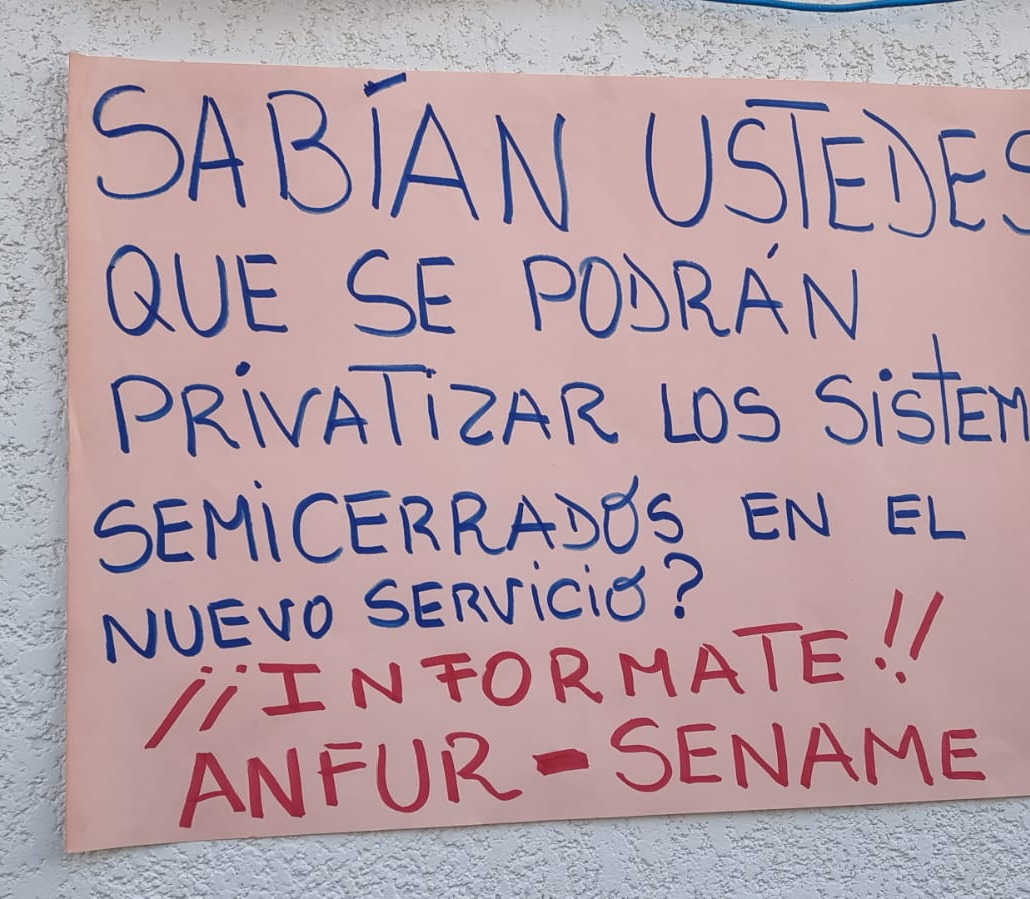 SABÍAN USTEDES
QUE SE PODRÁN
PRIVATIZAR LOS SISTEM
SEMICERRADOS EN EL
NUEVO SERVICIO?
¡¡INFORMATE!!
ANFUR - SENAME